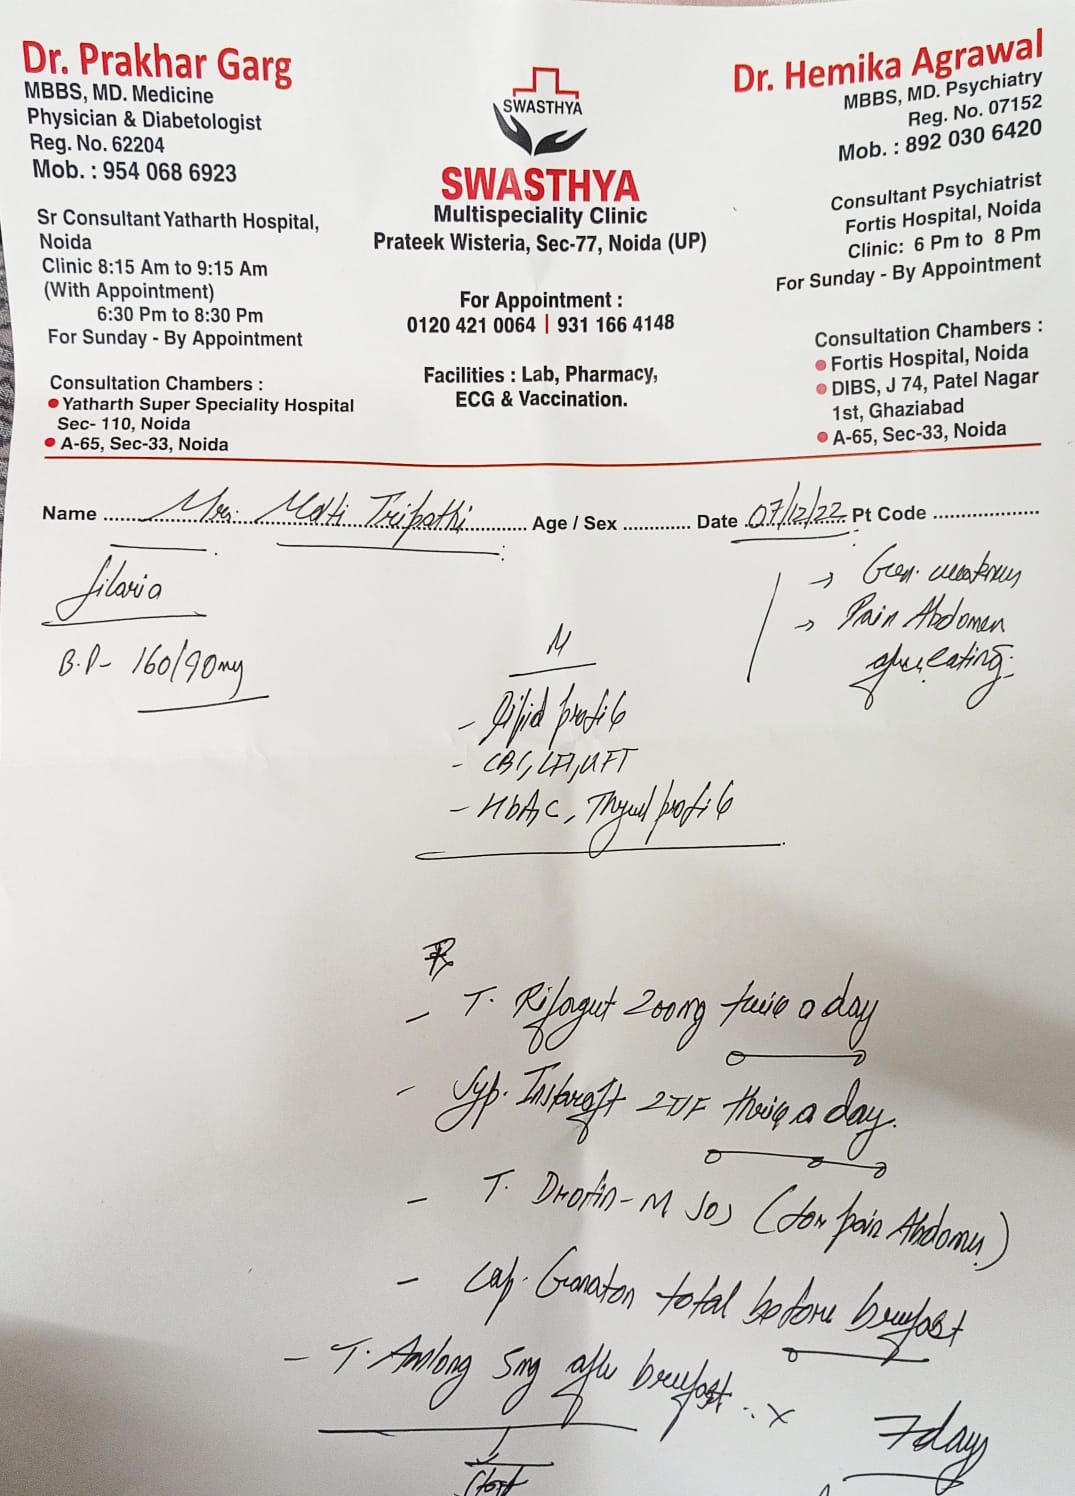 Dr. Prakhar Garg
MBBS, MD. Medicine
Physician & Diabetologist
Reg. No. 62204
Mob. : 954 068 6923
Sr Consultant Yatharth Hospital,
Noida
Clinic 8:15 Am to 9:15 Am
(With Appointment)
6:30 Pm to 8:30 Pm
For Sunday - By Appointment
Consultation Chambers :
Yatharth Super Speciality Hospital
Sec- 110, Noida
A-65, Sec-33, Noida
SWASTHYA
SWASTHYA
Multispeciality Clinic
Prateek Wisteria, Sec-77, Noida (UP)
For Appointment :
0120 421 0064 | 931 166 4148
Facilities : Lab, Pharmacy,
ECG & Vaccination.
Dr. Hemika Agrawal
MBBS, MD. Psychiatry
Reg. No. 07152
Mob. : 892 030 6420
Consultant Psychiatrist
Fortis Hospital, Noida
Clinic: 6 Pm to 8 Pm
For Sunday - By Appointment
Consultation Chambers :
Fortis Hospital, Noida
DIBS, J 74, Patel Nagar
1st, Ghaziabad
A-65, Sec-33, Noida
Name Mrs. Malti Tripathi Age / Sex Date 07/12/22 Pt Code
filaria
B.P- 160/90mg
→ Gen. weakness
→ Pain Abdomen
after eating.
- Lipid profile
- CBC, LFT, KFT
- HbA1c, Thyroid profile
Rx
- T. Rifagut 200mg twice a day
- Syp. 2TSF thrice a day.
- T. Drotin-M SOS (for pain Abdomen)
- Cap. Ganaton total before breakfast
- T. Amlong 5mg after breakfast .. x 7days
Start